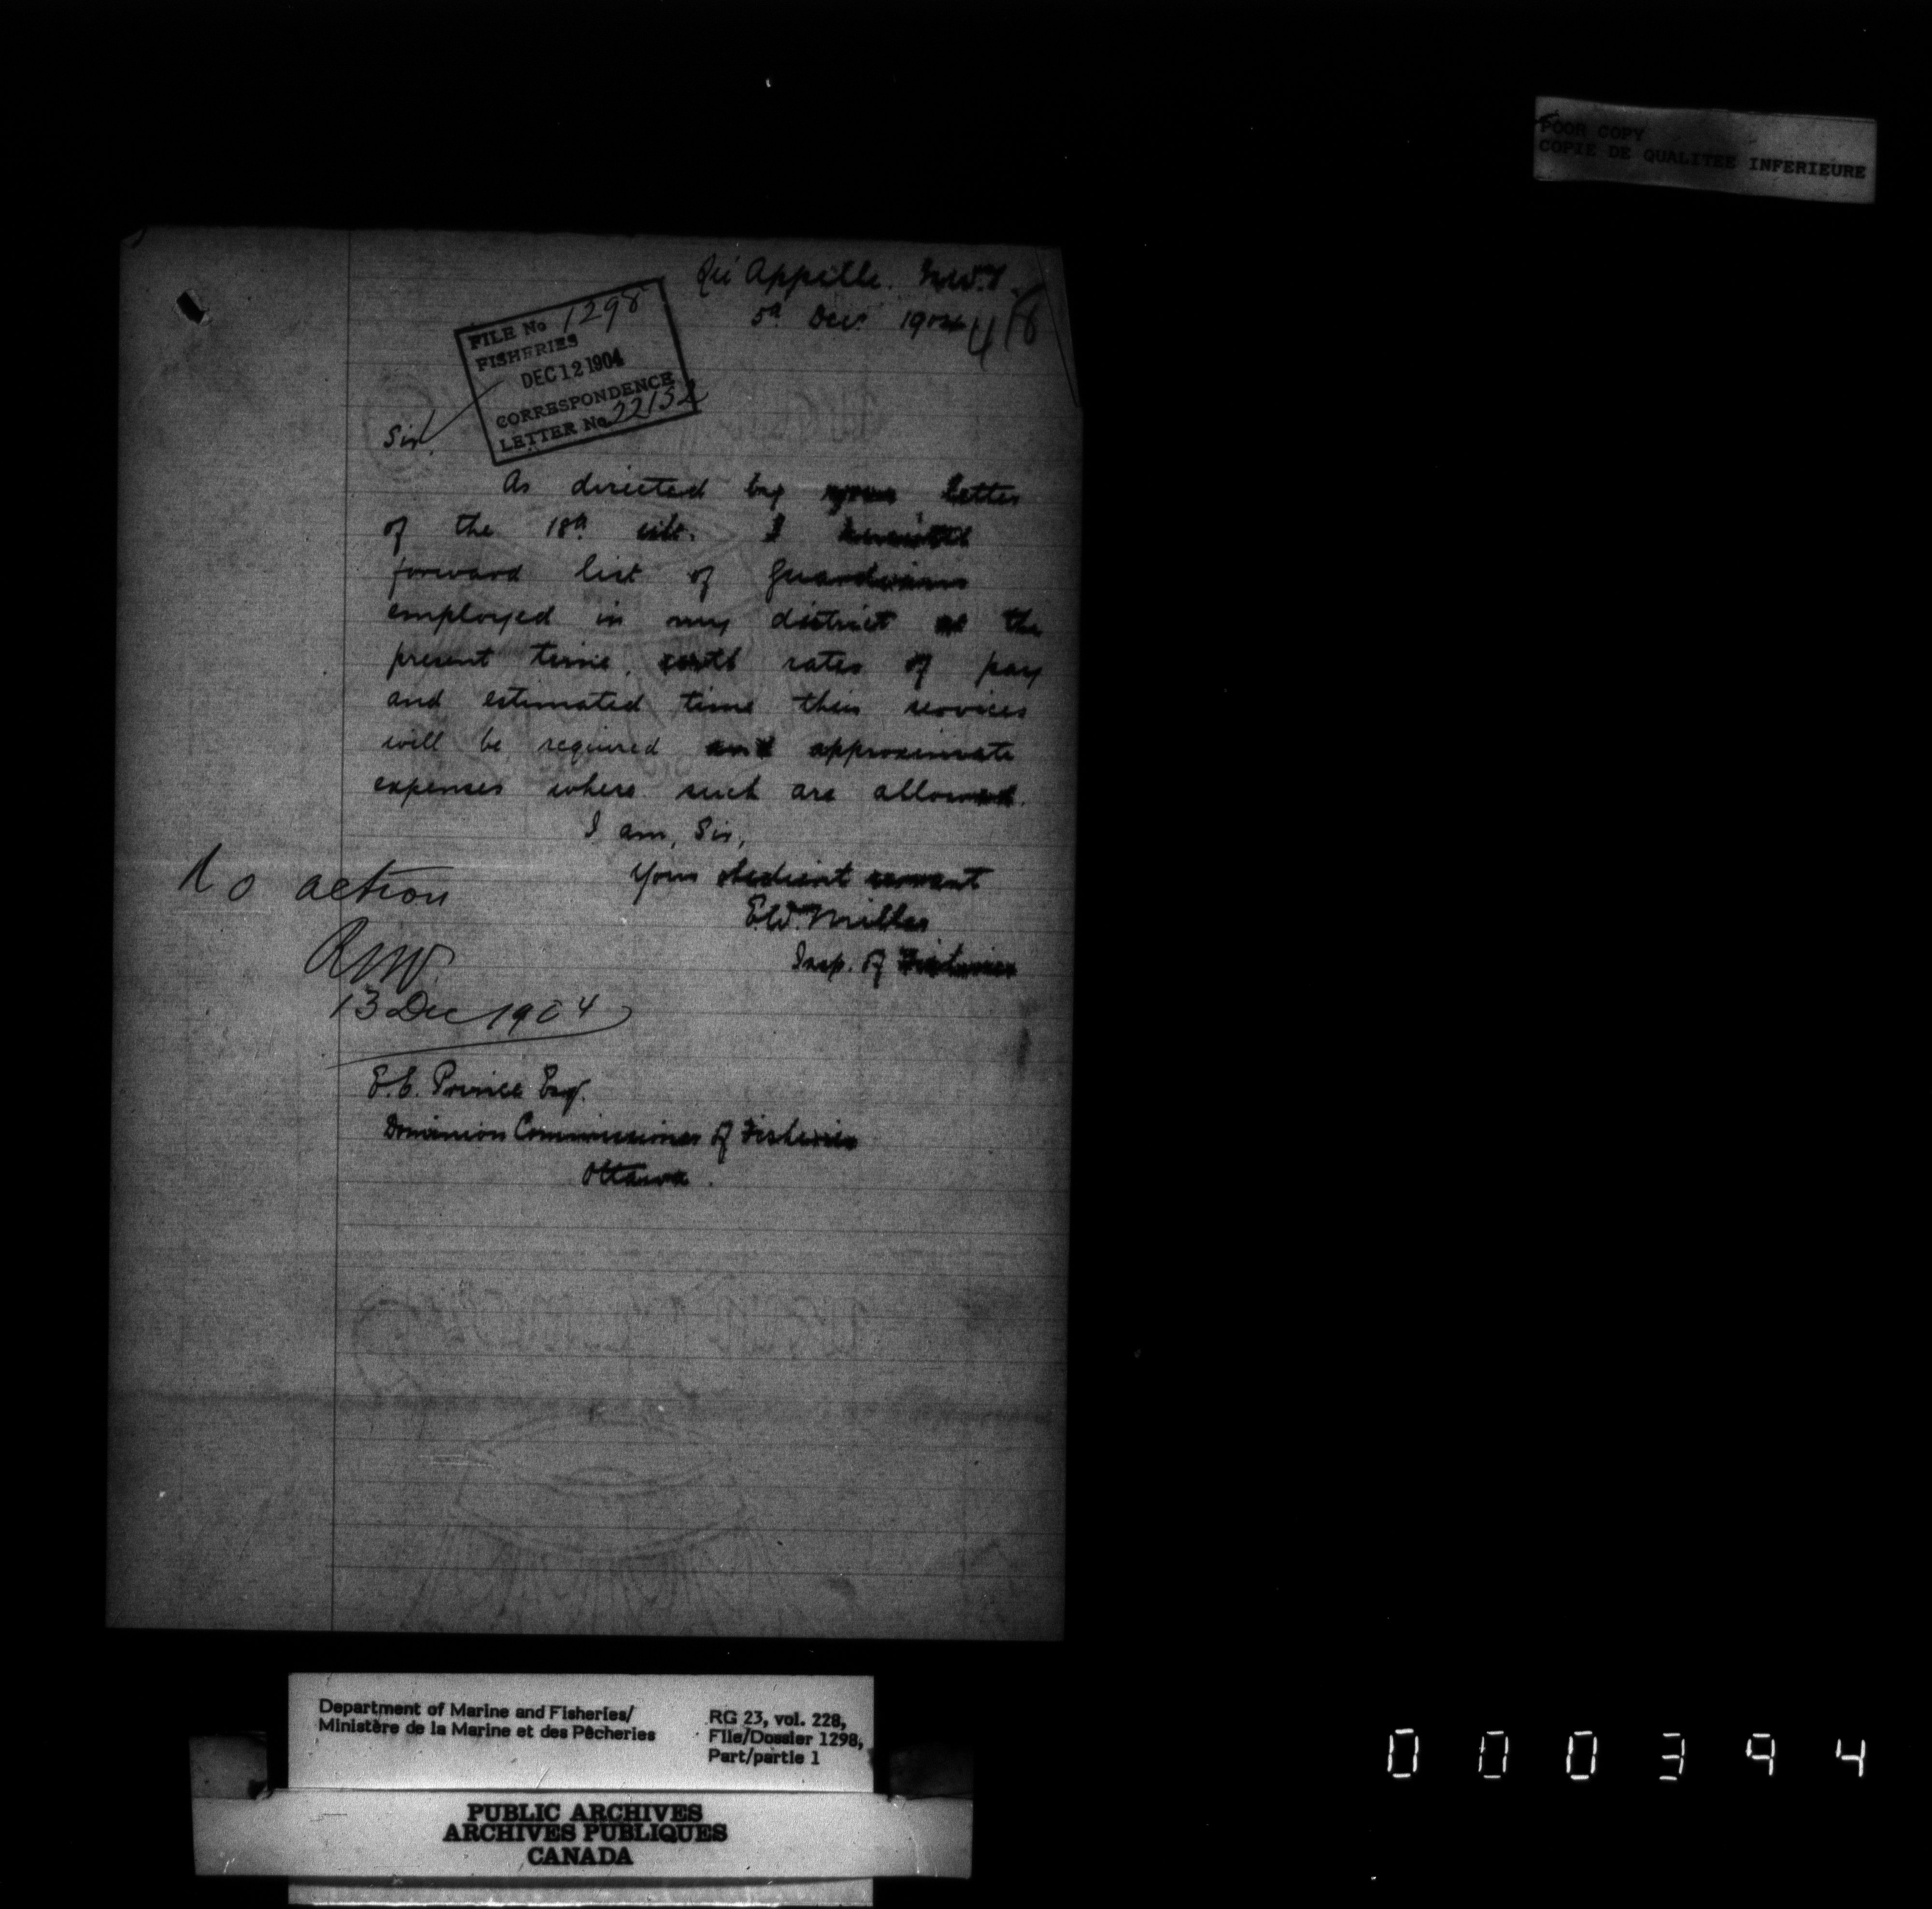 POOR COPY
COPIE DE QUALITEE INFERIEURE
Qu'Appelle. N.W.T.
5th Dec. 1904
418
FILE No 1298
FISHERIES
DEC 12 1904
CORRESPONDENCE
LETTER No. 22152
Sir,
As directed by your letter
of the 18th ult. I herewith
forward list of Guardians
employed in my district at the
present time, with rates of pay
and estimated time their services
will be required and approximate
expenses where such are allowed.
I am, Sir,
Your obedient servant
E.W. Miller
Insp. of Fisheries
No action
RNV
13 Dec 1904
E.E. Prince Esq.
Dominion Commissioner of Fisheries
Ottawa.
Department of Marine and Fisheries/
Ministère de la Marine et des Pêcheries
RG 23, vol. 228,
File/Dossier 1298,
Part/partie 1
PUBLIC ARCHIVES
ARCHIVES PUBLIQUES
CANADA
000394